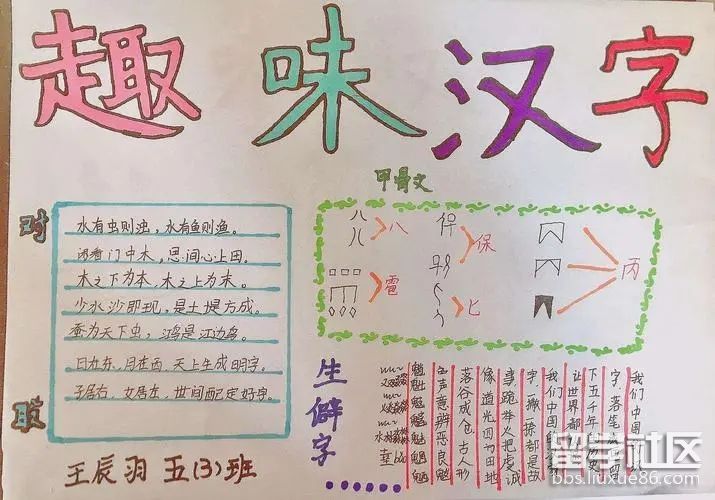 趣味汉字
甲骨文
对
水有虫则浊，水有鱼则渔。
闲看门中木，思间心上田。
木之下为本，木之上为末。
少水沙即现，是土堤方成。
蚕为天下虫，鸿是江边鸟。
日在东，月在西，天上生成明字。
子居右，女居左，世间配定好字。
八
保
雹
匕
丙
生僻字
我们中国
字，落笔
下五千年
让世界都
我们中国
字一撇一捺都是故
事跪举火把虔诚
像道光四方田地
落谷成仓古人形
色声意辨恶良魑
魅魍魉魑魅魍魉
水
王辰羽 五(3)班
留学社区
bbs.liuxue86.com